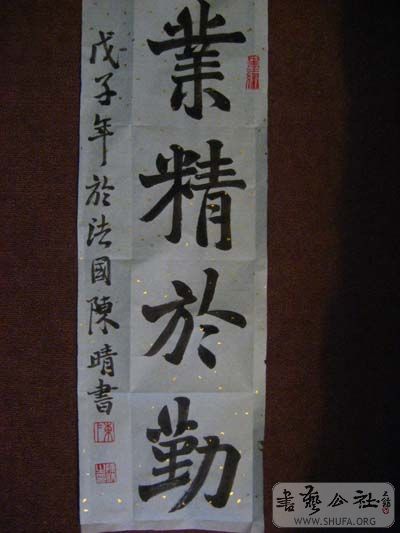 業精於勤
戊子年於法國陳晴書
書藝公社
WWW.SHUFA.ORG